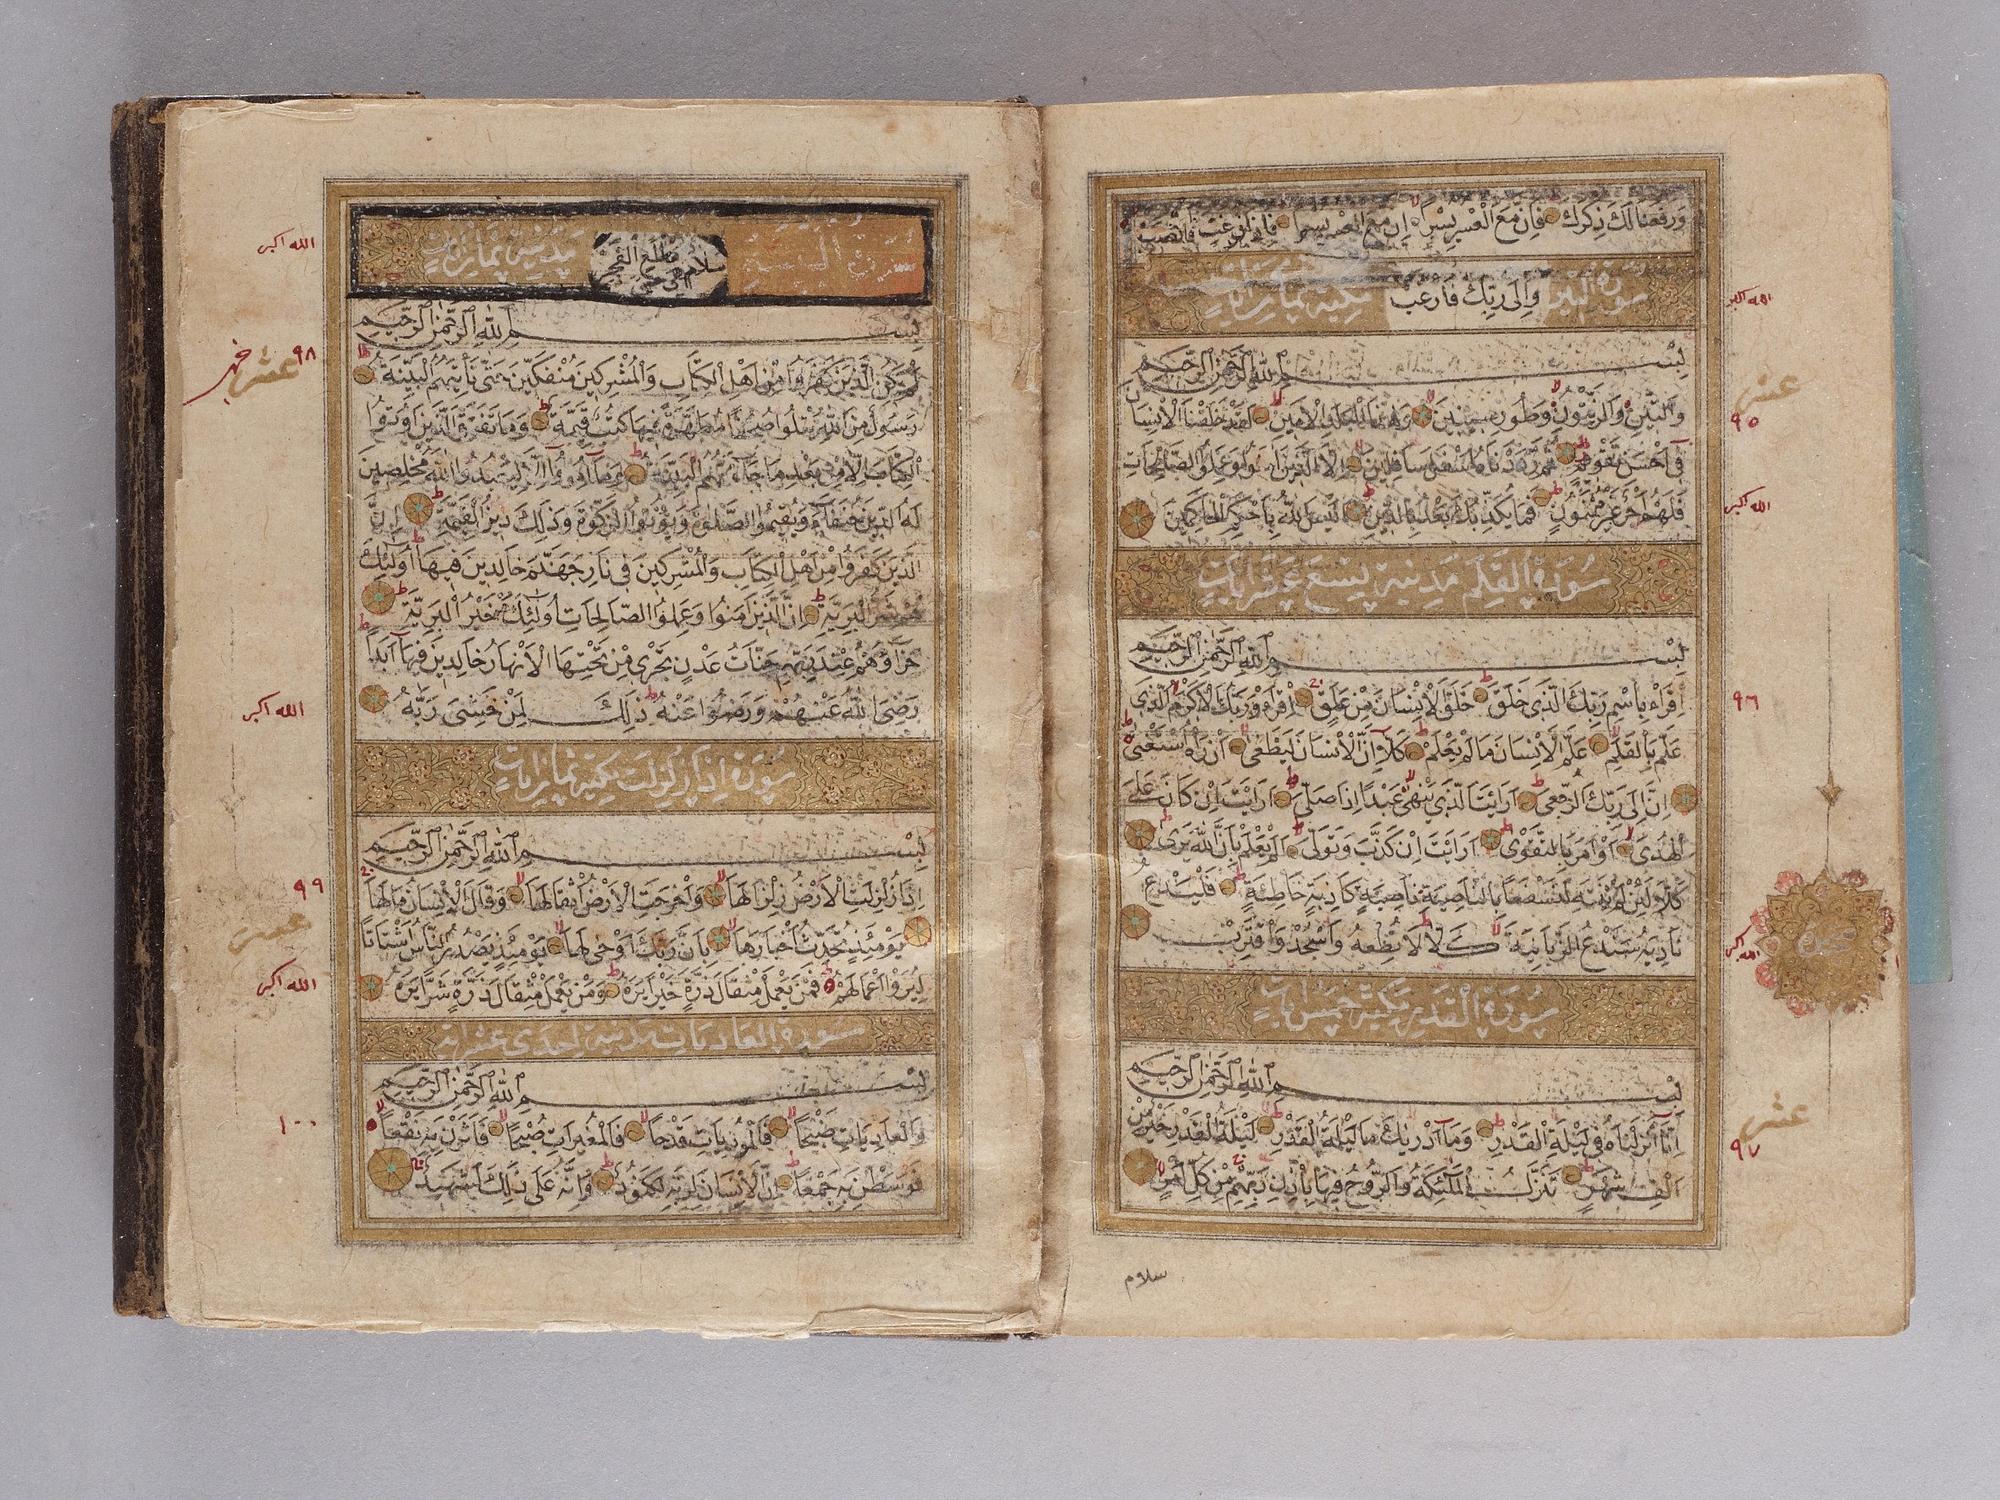 وَرَفَعْنَا لَكَ ذِكْرَكَ فَاِنَّ مَعَ الْعُسْرِ يُسْرًا اِنَّ مَعَ الْعُسْرِ يُسْرًا فَاِذَا فَرَغْتَ فَانْصَبْ
سورة التين وَاِلٰى رَبِّكَ فَارْغَبْ مكية ثمان ايات
الله اكبر
بِسْمِ اللهِ الرَّحْمٰنِ الرَّحِيمِ
عشر
وَالتِّينِ وَالزَّيْتُونِ وَطُورِ سِينِينَ وَهٰذَا الْبَلَدِ الْاَمِينِ لَقَدْ خَلَقْنَا الْاِنْسَانَ
٩٥
فِي اَحْسَنِ تَقْوِيمٍ ثُمَّ رَدَدْنَاهُ اَسْفَلَ سَافِلِينَ اِلَّا الَّذِينَ اٰمَنُوا وَعَمِلُوا الصَّالِحَاتِ
فَلَهُمْ اَجْرٌ غَيْرُ مَمْنُونٍ فَمَا يُكَذِّبُكَ بَعْدُ بِالدِّينِ اَلَيْسَ اللهُ بِاَحْكَمِ الْحَاكِمِينَ
الله اكبر
سُورَةُ القَلَمِ مَدَنِيَّة تِسْعَ عَشَر ايَات
بِسْمِ اللهِ الرَّحْمٰنِ الرَّحِيمِ
اِقْرَاْ بِاسْمِ رَبِّكَ الَّذِي خَلَقَ خَلَقَ الْاِنْسَانَ مِنْ عَلَقٍ اِقْرَاْ وَرَبُّكَ الْاَكْرَمُ الَّذِي
٩٦
عَلَّمَ بِالْقَلَمِ عَلَّمَ الْاِنْسَانَ مَا لَمْ يَعْلَمْ كَلَّا اِنَّ الْاِنْسَانَ لَيَطْغٰى اَنْ رَاٰهُ اسْتَغْنٰى
اِنَّ اِلٰى رَبِّكَ الرُّجْعٰى اَرَاَيْتَ الَّذِي يَنْهٰى عَبْدًا اِذَا صَلّٰى اَرَاَيْتَ اِنْ كَانَ عَلَى
الْهُدٰى اَوْ اَمَرَ بِالتَّقْوٰى اَرَاَيْتَ اِنْ كَذَّبَ وَتَوَلّٰى اَلَمْ يَعْلَمْ بِاَنَّ اللهَ يَرٰى
كَلَّا لَئِنْ لَمْ يَنْتَهِ لَنَسْفَعًا بِالنَّاصِيَةِ نَاصِيَةٍ كَاذِبَةٍ خَاطِئَةٍ فَلْيَدْعُ
نَادِيَهُ سَنَدْعُ الزَّبَانِيَةَ كَلَّا لَا تُطِعْهُ وَاسْجُدْ وَاقْتَرِبْ
الله اكبر
سُورَةُ الْقَدْرِ مَكِّيَّة خَمْسُ ايَات
بِسْمِ اللهِ الرَّحْمٰنِ الرَّحِيمِ
اِنَّا اَنْزَلْنَاهُ فِي لَيْلَةِ الْقَدْرِ وَمَا اَدْرٰيكَ مَا لَيْلَةُ الْقَدْرِ لَيْلَةُ الْقَدْرِ خَيْرٌ مِنْ
عشر
٩٧
اَلْفِ شَهْرٍ تَنَزَّلُ الْمَلٰئِكَةُ وَالرُّوحُ فِيهَا بِاِذْنِ رَبِّهِمْ مِنْ كُلِّ اَمْرٍ
سلام
سورة البينة سَلَامٌ هِيَ حَتّٰى مَطْلَعِ الْفَجْرِ مدنية ثمان ايات
الله اكبر
بِسْمِ اللهِ الرَّحْمٰنِ الرَّحِيمِ
٩٨
عشر
لَمْ يَكُنِ الَّذِينَ كَفَرُوا مِنْ اَهْلِ الْكِتَابِ وَالْمُشْرِكِينَ مُنْفَكِّينَ حَتّٰى تَاْتِيَهُمُ الْبَيِّنَةُ
رَسُولٌ مِنَ اللهِ يَتْلُوا صُحُفًا مُطَهَّرَةً فِيهَا كُتُبٌ قَيِّمَةٌ وَمَا تَفَرَّقَ الَّذِينَ اُوتُوا
الْكِتَابَ اِلَّا مِنْ بَعْدِ مَا جَاءَتْهُمُ الْبَيِّنَةُ وَمَا اُمِرُوا اِلَّا لِيَعْبُدُوا اللهَ مُخْلِصِينَ
لَهُ الدِّينَ حُنَفَاءَ وَيُقِيمُوا الصَّلٰوةَ وَيُؤْتُوا الزَّكٰوةَ وَذٰلِكَ دِينُ الْقَيِّمَةِ اِنَّ
الَّذِينَ كَفَرُوا مِنْ اَهْلِ الْكِتَابِ وَالْمُشْرِكِينَ فِي نَارِ جَهَنَّمَ خَالِدِينَ فِيهَا اُولٰئِكَ
هُمْ شَرُّ الْبَرِيَّةِ اِنَّ الَّذِينَ اٰمَنُوا وَعَمِلُوا الصَّالِحَاتِ اُولٰئِكَ هُمْ خَيْرُ الْبَرِيَّةِ
جَزَاؤُهُمْ عِنْدَ رَبِّهِمْ جَنَّاتُ عَدْنٍ تَجْرِي مِنْ تَحْتِهَا الْاَنْهَارُ خَالِدِينَ فِيهَا اَبَدًا
رَضِيَ اللهُ عَنْهُمْ وَرَضُوا عَنْهُ ذٰلِكَ لِمَنْ خَشِيَ رَبَّهُ
الله اكبر
سُورَةُ اِذَا زُلْزِلَت مكية ثمان ايات
بِسْمِ اللهِ الرَّحْمٰنِ الرَّحِيمِ
اِذَا زُلْزِلَتِ الْاَرْضُ زِلْزَالَهَا وَاَخْرَجَتِ الْاَرْضُ اَثْقَالَهَا وَقَالَ الْاِنْسَانُ مَا لَهَا
٩٩
عشر
يَوْمَئِذٍ تُحَدِّثُ اَخْبَارَهَا بِاَنَّ رَبَّكَ اَوْحٰى لَهَا يَوْمَئِذٍ يَصْدُرُ النَّاسُ اَشْتَاتًا
لِيُرَوْا اَعْمَالَهُمْ فَمَنْ يَعْمَلْ مِثْقَالَ ذَرَّةٍ خَيْرًا يَرَهُ وَمَنْ يَعْمَلْ مِثْقَالَ ذَرَّةٍ شَرًّا يَرَهُ
الله اكبر
سورة العاديات مدنية احدى عشر اية
بِسْمِ اللهِ الرَّحْمٰنِ الرَّحِيمِ
وَالْعَادِيَاتِ ضَبْحًا فَالْمُورِيَاتِ قَدْحًا فَالْمُغِيرَاتِ صُبْحًا فَاَثَرْنَ بِهِ نَقْعًا
١٠٠
فَوَسَطْنَ بِهِ جَمْعًا اِنَّ الْاِنْسَانَ لِرَبِّهِ لَكَنُودٌ وَاِنَّهُ عَلٰى ذٰلِكَ لَشَهِيدٌ